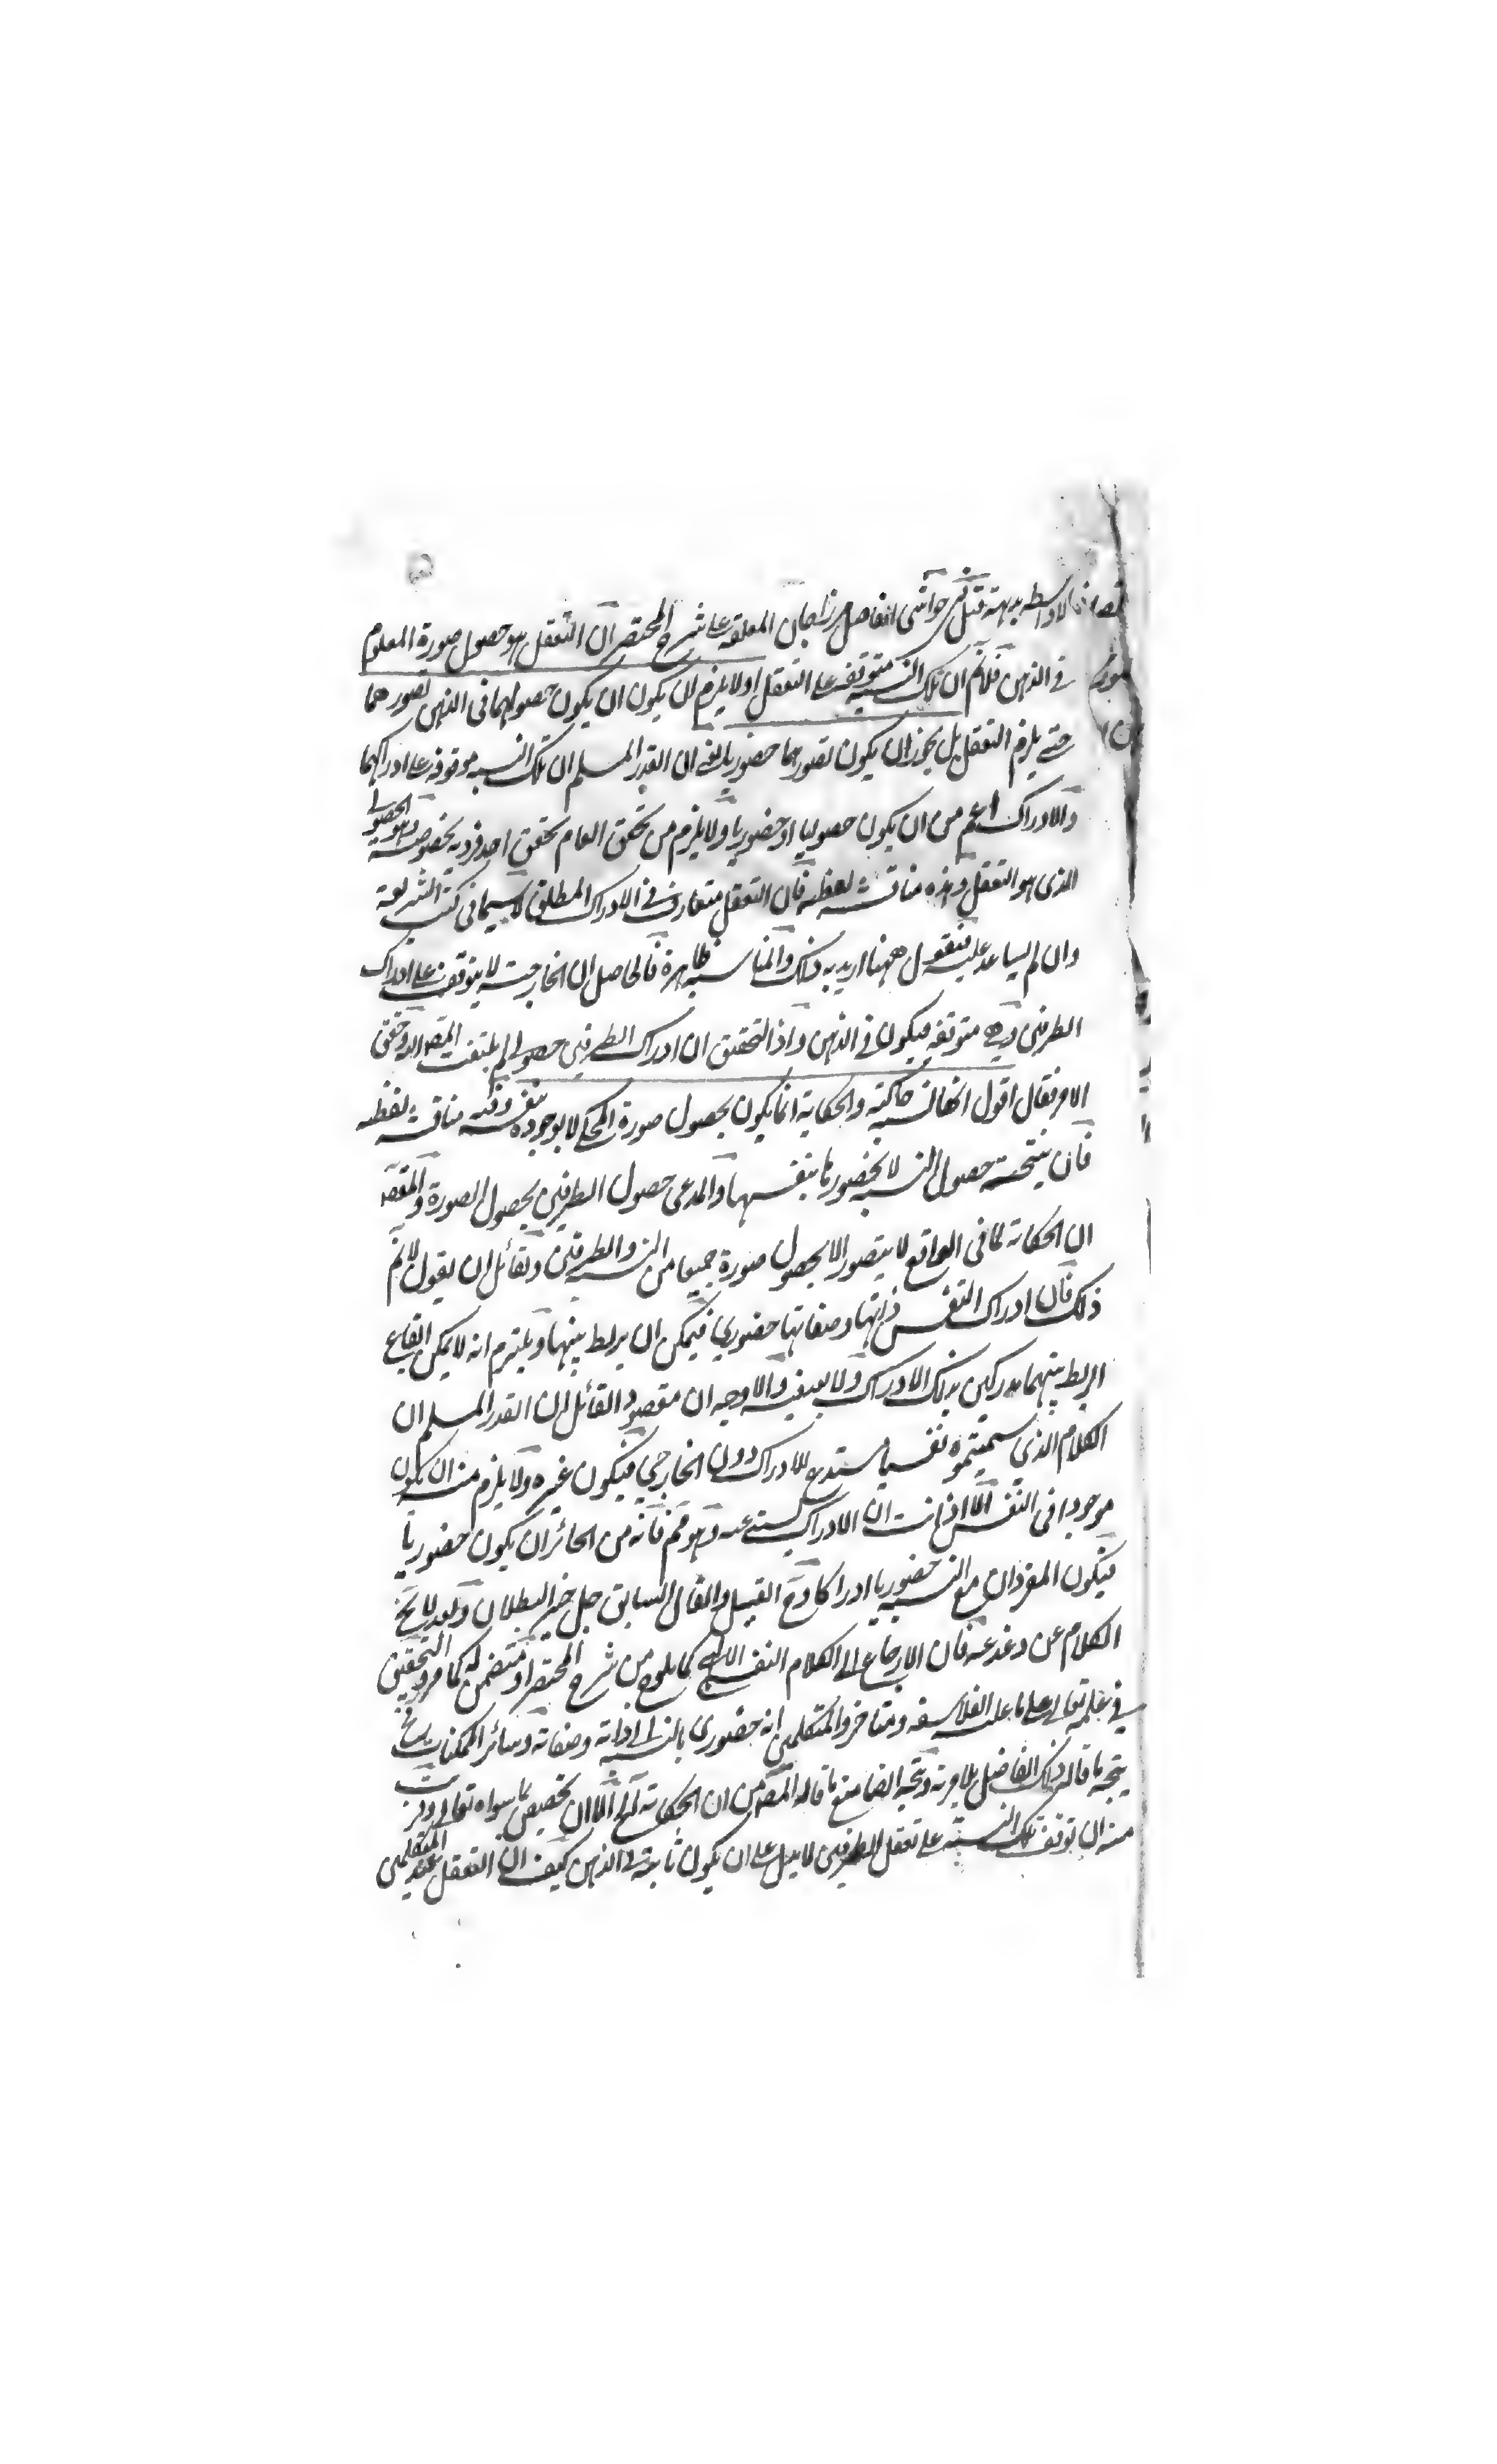 بلاواسطه بديهة قيل في حواشي الفاضل ميرزاجان المعلقة على شرح المختصر ان التعقل هو حصول صورة المعلوم
في الذهن فلانم ان تلك النسبة متوقفة على التعقل اولا يلزم ان يكون حصولهما في الذهن تصورهما
حتى يلزم التعقل بل يجوز ان يكون تصورهما حضوريا يعني ان القدر المسلم ان تلك النسبة موقوفة على ادراكهما
والادراك اعم من ان يكون حصوليا او حضوريا ولا يلزم من تحقق العام تحقق احد فرديه بخصوصه وهو الحصولي
الذي هو التعقل وهذه مناقشة لفظية فان التعقل متعارف في الادراك المطلق لاسيما في كتب الشريعة
وان لم يساعد عليه فنقول ههنا اريد به ذلك والمناسبة ظاهرة فالحاصل ان الخارجية لا يتوقف على ادراك
الطرفين وهي متوقفة فيكون في الذهن واذ التحقيق ان ادراك الطرفين حصولي لم يلتفت المصـ اليه وحقق
الامر فقال اقول انها نسبة حاكية والحكاية انما يكون بحصول صورة المحكي لا بوجوده بنفسه وفيه مناقشة لفظية
فان نتيجته حصول النسبة لا بحضورها بنفسها والمدعى حصول الطرفين بحصول الصورة والمقصـ
ان الحكاية لما في الواقع لا يتصور الا بحصول صورة جميعا من النسبة والطرفين ولقائل ان يقول لانم
ذلك فان ادراك النفس ذاتها وصفاتها حضوري فيمكن ان يربط بينها ويلتزم انه لا يمكن ايقاع
الربط بينهما مدركين بذلك الادراك ولا بعد فيه والاوجه ان مقصود القائل ان القدر المسلم ان
الكلام الذي سميتموه نفسيا يستدعي الادراك دون الخارجي فيكون غيره ولا يلزم منه ان يكون
موجودا في النفس الا اذا ثبت ان الادراك يستدعيه وهو مم فانه من الجائز ان يكون حضوريا
فيكون المفردان مع النسبة حضوريا ادراكا ودفع القيل والقال السابق جلي خبر البطلان وبعد لا يخ
الكلام عن دغدغة فان الارجاع الى الكلام النفسي الالهي كما يلوح من شرح المختصر او متضمن له كما مر والتحقيق
في علمه تعالى على ما عليه الفلاسفة ومتاخروا المتكلمين انه حضوري بالنسبة الى ذاته وصفاته وسائر الممكنات فح
يتجه ما قاله ذلك الفاضل بلا مرية ويتجه ايضا منع ما قاله المصـ من ان الحكاية الخ الا ان يخصص بما سواه تعالى وقريب
منه ان توقف تلك النسبة على تعقل الطرفين لا يدل على ان يكون ثابتة في الذهن كيف ان التعقل عند المتكلمين